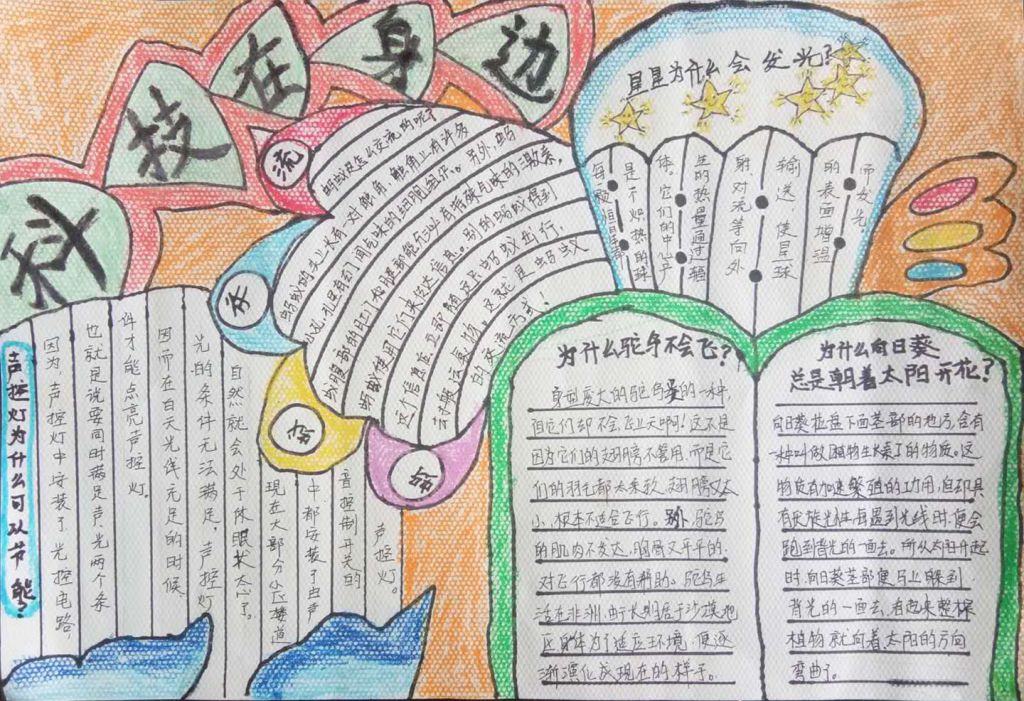 科技在身边
声控灯为什么可以节能?
因为,声控灯中安装了光控电路
也就是说要同时满足声、光两个条
件才能点亮声控灯。
因而在白天光线充足的时候,
光的条件无法满足,声控灯
自然就会处于休眠状态了。
现在大部分小区楼道
中,都安装了由声
音控制开关的
声控灯。
流
交
蚁
蚂
蚂蚁是怎么交流的呢?
蚂蚁的头上长有一对触角,触角上有许多
小孔,孔里有专门闻气味的细胞组织。另外,蚂
蚁腹部的肛门和腿部能分泌有特殊气味的激素,
蚂蚁使用它们来传达信息。别的蚂蚁得到
这个信息后立即随这只蚂蚁出行,
寻找食物。这就是蚂蚁
的交流方式!
星星为什么会发光?
每颗恒星都
是个炽热的球
体。它们的中心产
生的热量通过辐
射,对流等向外
输送,使星球
的表面增温
而发光。
为什么驼鸟不会飞?
身型庞大的驼鸟是的一种,
但它们却不会飞上天啊!这不是
因为它们的翅膀不管用,而是它
们的羽毛都太柔软,翅膀又太
小,根本不适合飞行。另外,驼鸟
的肌肉不发达,胸骨又平平的,
对飞行都没有帮助。驼鸟生
活在非洲,由于长期居于沙漠地
区身体为了适应环境,便逐
渐演化成现在的样子。
为什么向日葵
总是朝着太阳开花?
向日葵花盘下面茎部的地方,含有
一种叫做植物生长素丁的物质。这
物质有加速繁殖的功用,但却具
有厌旋光性,每遇到光线时,便会
跑到背光的一面去。所以太阳升起
时,向日葵茎部便马上躲到
背光的一面去,看起来整株
植物就向着太阳的方向
弯曲了。